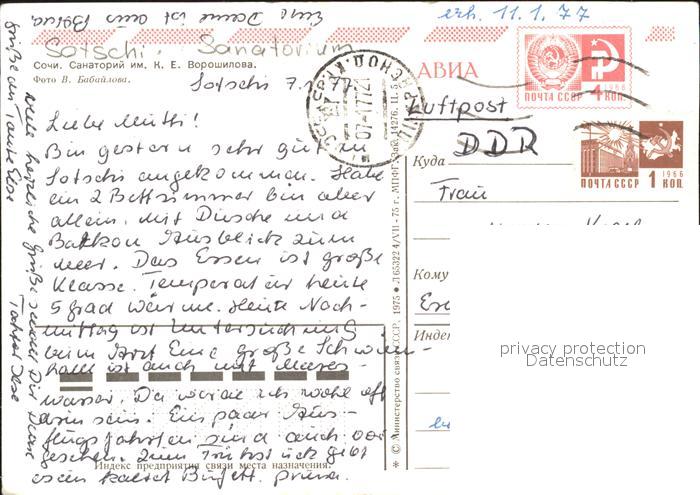 Eine Dame ist aus
erh. 11.1.77
Sotschi. Sanatorium
Сочи. Санаторий им. К. Е. Ворошилова.
Фото В. Бабайлова.
Sotschi 7.1.77
АВИА
ПОЧТА СССР 4 КОП.
1966
Luftpost
DDR
ПОЧТА СССР 1 КОП.
1966
Куда
Frau
Кому
Индекс
privacy protection
Datenschutz
Liebe Mutti!
Bin gestern sehr gut in
Sotschi angekommen. Habe
ein 2 Bettzimmer bin aber
allein. mit Dusche und
Balkon Ausblick zum
Meer. Das Essen ist große
Klasse. Temperatur heute
5 grad wärme. Heute Nach-
mittag ist Untersuchung
beim Arzt Eine große Schwimm-
halle ist auch mit Meeres-
wasser. Da werde ich wohl oft
drin sein. Ein paar Aus-
flugsfahrten sind auch vor
gesehen. Zum Frühstück gibt
es ein kaltes Büfett. prima.
Индекс предприятия связи места назначения.
viele herzliche Grüße sendet Dir Deine
Tochter Ilse
Grüße an Tante Else
* © Министерство связи СССР, 1975 • Л 65322 4/VII - 75 г. МПФГ. Зак. 14276. ц. 5